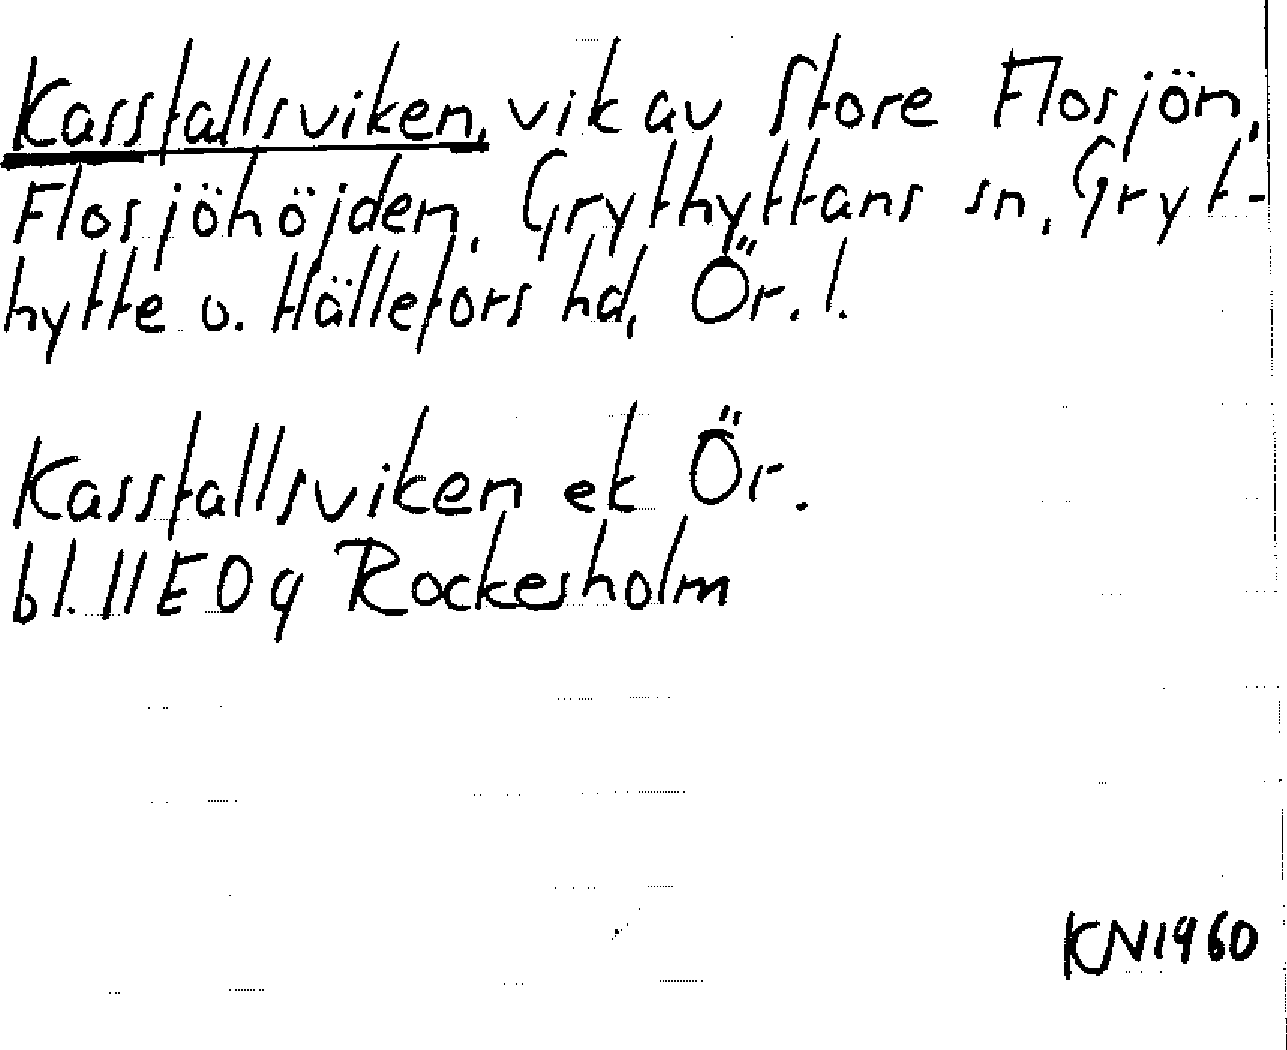 Kassfallsviken, vik av Store Flosjön,
Flosjöhöjden, Grythyttans sn, Gryt-
hytte o. Hällefors hd, Ör. l.
Kassfallsviken ek Ör.
bl. 11E0g Rockesholm
KN1960